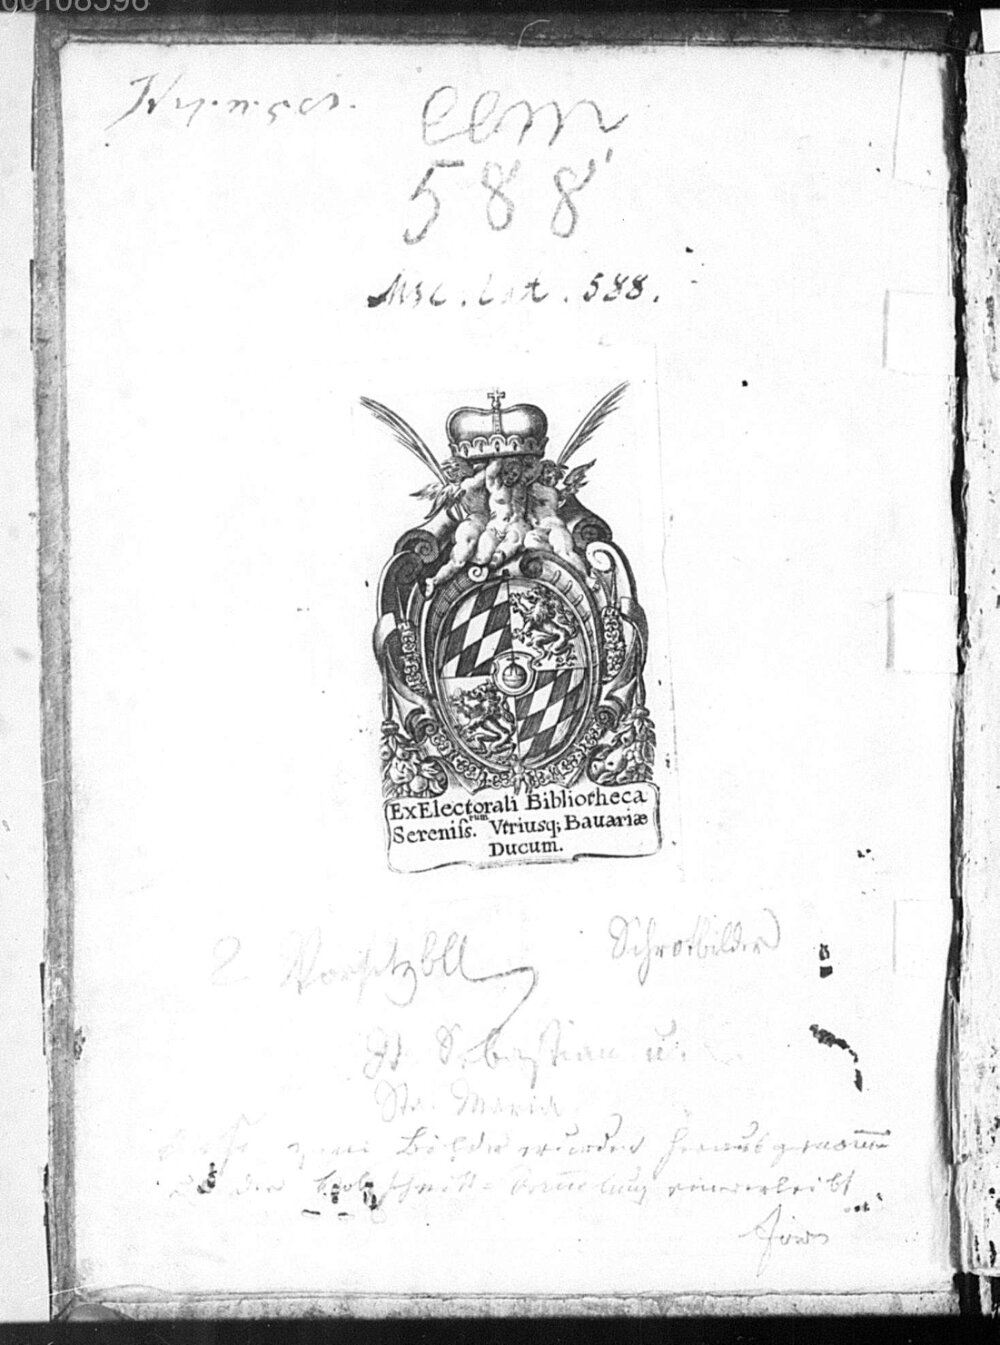 00108596
clm
588
Msc. Lat. 588.
Ex Electorali Bibliotheca
Sereniss.rum Vtriusq; Bauariæ
Ducum.
2 Vorsetzbll Schrotbilder
St Sebastian u.
Sta. Maria
zwei Bilder wurden herausgenommen
der Holzschnitt-Sammlung einverleibt